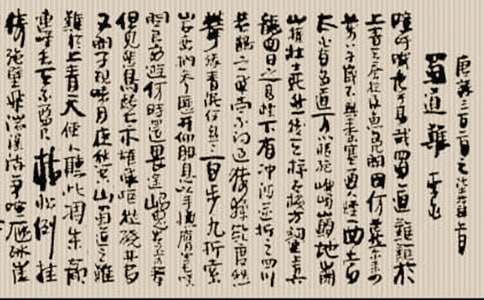 唐詩三百首之
蜀道難 李白
噫吁嚱危乎高哉蜀道難難於
上青天蚕丛及魚凫開國何茫然尔来
四万八千歲不與秦塞通人煙西當
太白有鳥道可以橫絕峨嵋巔地崩
山摧壯士死然後天梯石棧方鉤連上有六
龍回日之高標下有沖波逆折之回川
黃鶴之飛尚不得過猿猱欲度愁
攀緣青泥何盤盤百步九折縈
岩巒捫參歷井仰脅息以手撫膺坐長嘆
問君西遊何時還畏途巉岩不可攀
但見悲鳥號古木雄飛雌從繞林間
又聞子規啼夜月愁空山蜀道之難
難於上青天使人聽此凋朱顏
連峰去天不盈尺枯松倒挂
倚絕壁飛湍瀑流爭喧豗砯崖